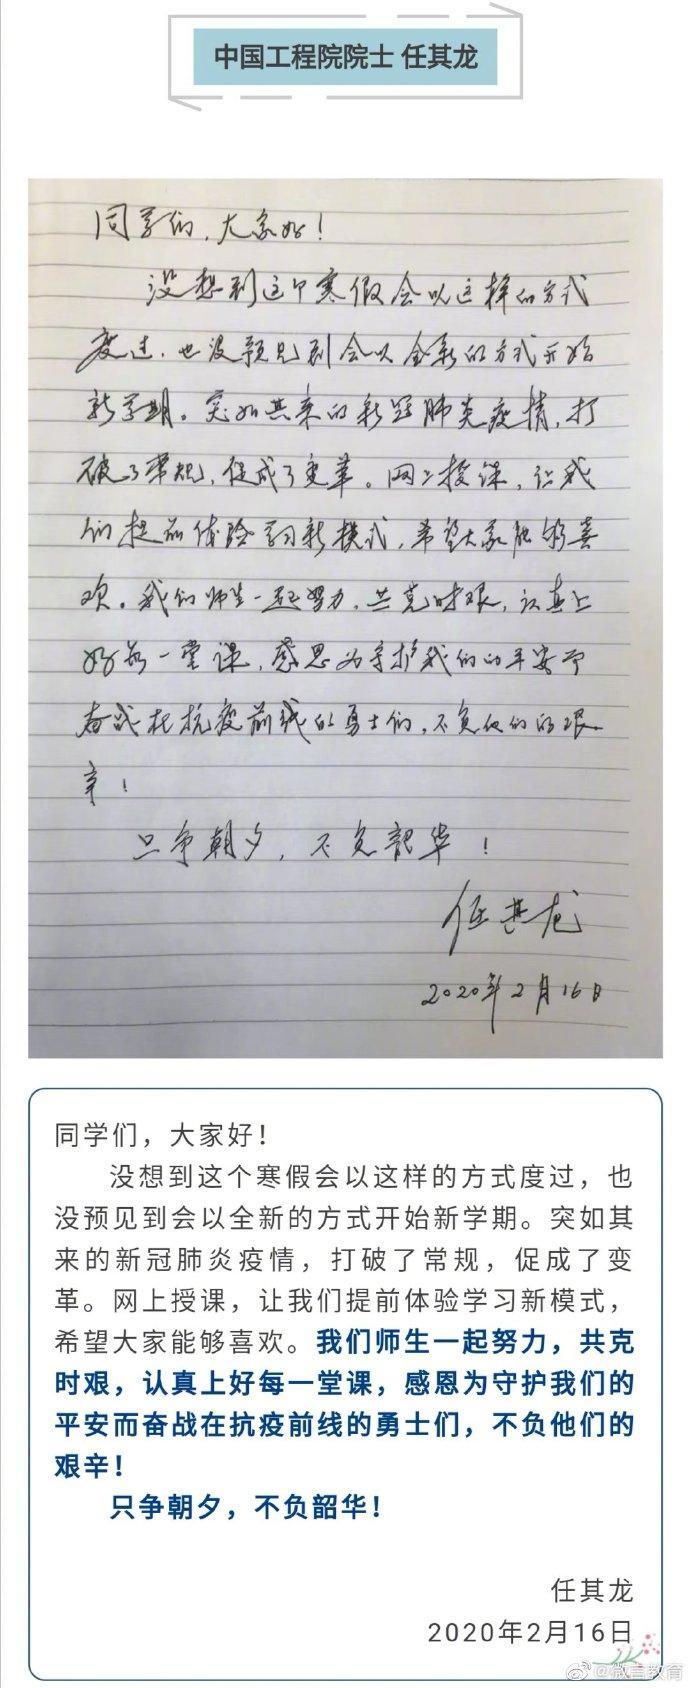 中国工程院院士 任其龙
同学们，大家好！
没想到这个寒假会以这样的方式
度过，也没预见到会以全新的方式开始
新学期。突如其来的新冠肺炎疫情，打
破了常规，促成了变革。网上授课，让我
们提前体验学习新模式，希望大家能够喜
欢。我们师生一起努力，共克时艰，认真上
好每一堂课，感恩为守护我们的平安而
奋战在抗疫前线的勇士们，不负他们的艰
辛！
只争朝夕，不负韶华！
任其龙
2020年2月16日
同学们，大家好！
没想到这个寒假会以这样的方式度过，也
没预见到会以全新的方式开始新学期。突如其
来的新冠肺炎疫情，打破了常规，促成了变
革。网上授课，让我们提前体验学习新模式，
希望大家能够喜欢。我们师生一起努力，共克
时艰，认真上好每一堂课，感恩为守护我们的
平安而奋战在抗疫前线的勇士们，不负他们的
艰辛！
只争朝夕，不负韶华！
任其龙
2020年2月16日
@微言教育